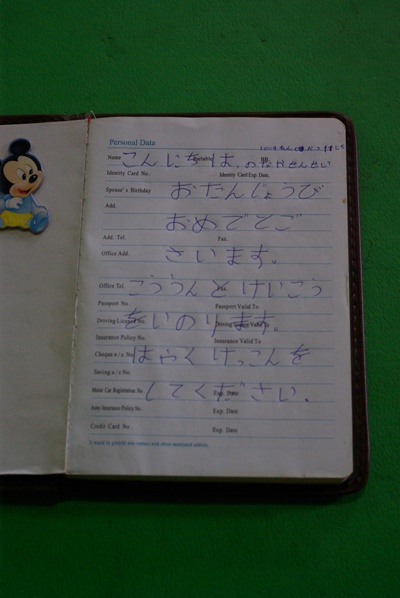 Personal Data
Name こんにちは、
Identity Card No. Identity Card Exp. Date.
Spouse's Birthday おたんじょうび
Add.
おめでとご
Add. Tel. Fax.
Office Add. ざいます。
Office Tel. こううんと けいこう
Passport No. Passport Valid To
Driving License No. をいのります。 Driving License Valid To
Insurance Policy No. Insurance Valid To
Cheque a/c No. はやく けっこんを
Saving a/c No.
Motor Car Registration No. してください. Exp. Date
Insurance Policy No. Exp. Date
Credit Card No. Exp. Date